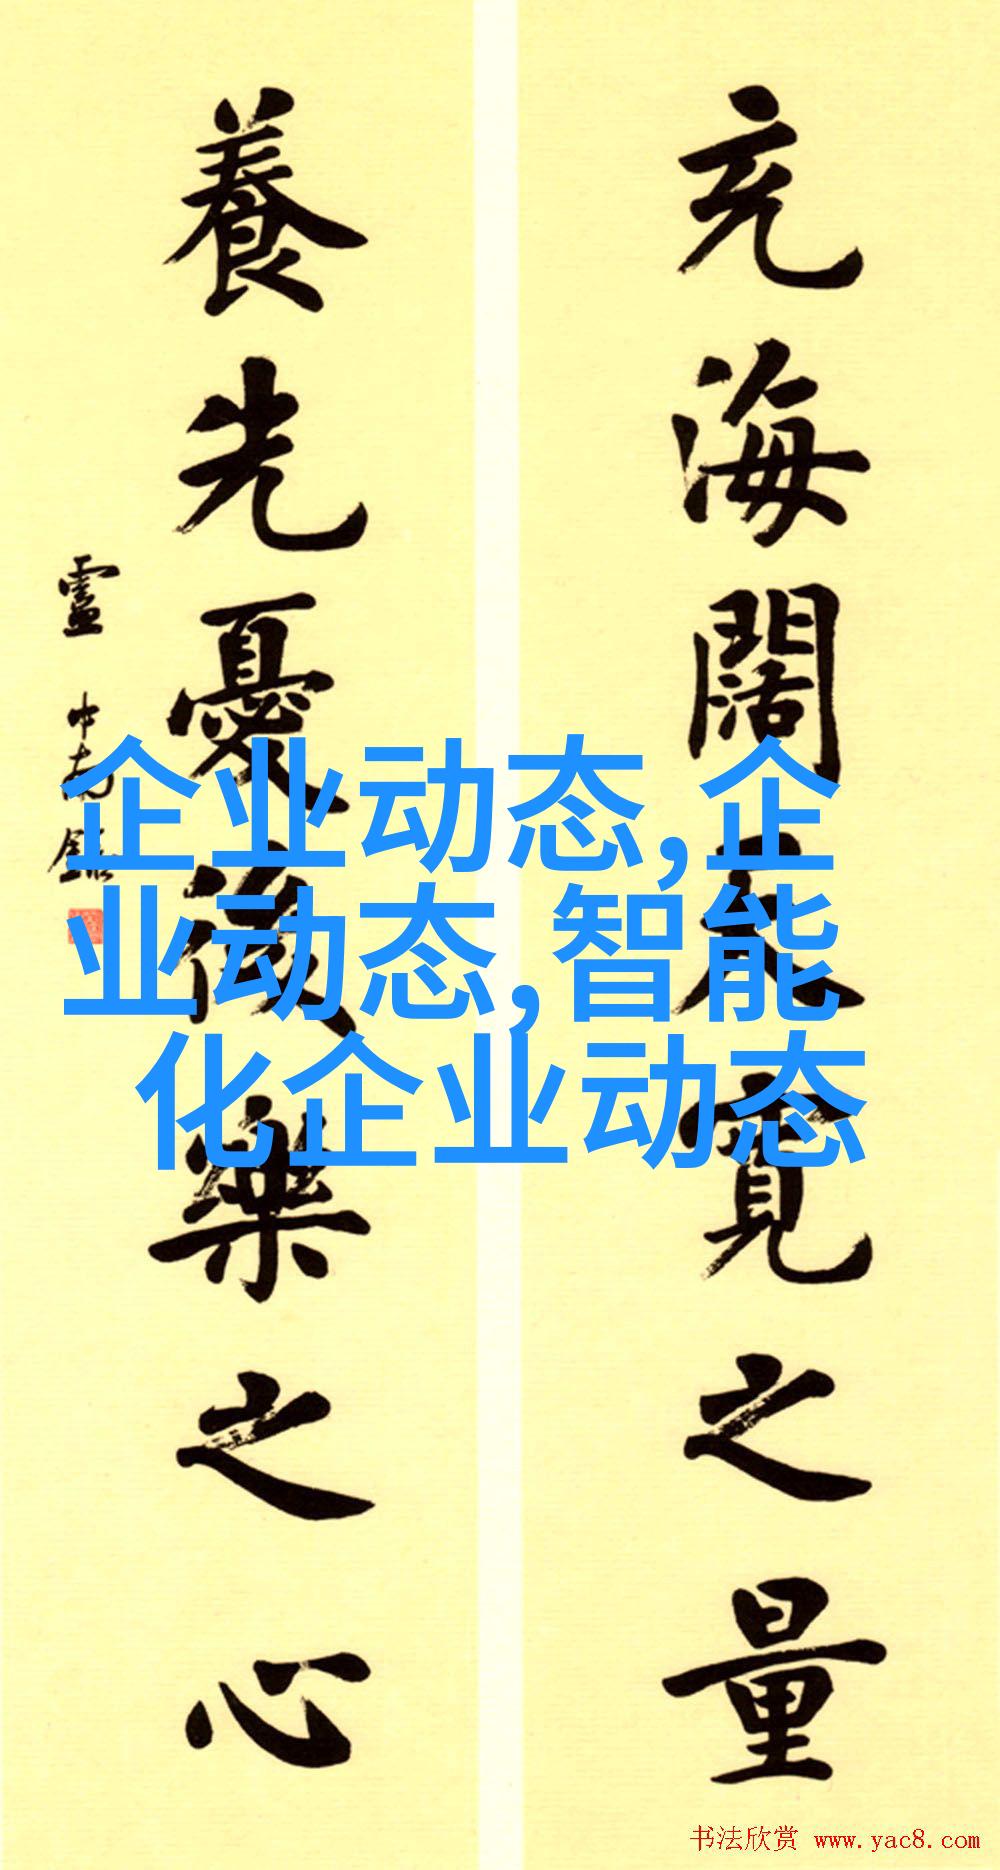 充海闊天寬之量
養先憂後樂之心
盧中南
企业动态,企
业动态,智能
化企业动态
书法欣赏 www.yac8.com